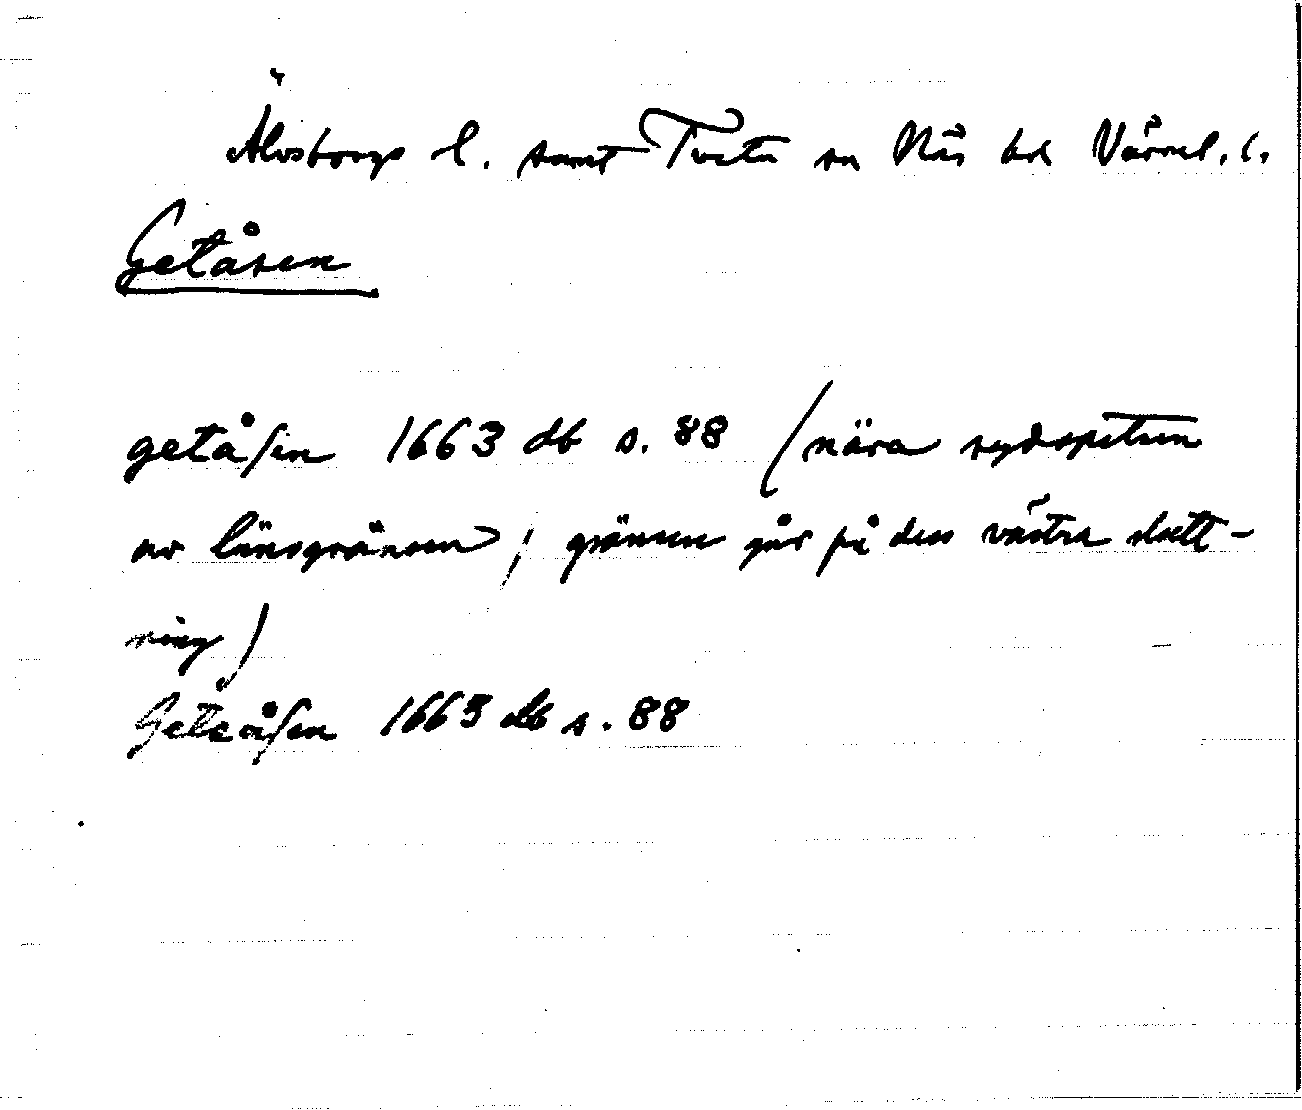 Älvsborgs l. samt Tveta sn Näs hd Värml. l.
Getåsen
getåſen 1663 db s. 88 (nära sydspetsen
av länsgränsen; gränsen går på dess västra slutt-
ning)
Geteåſen 1663 db s. 88